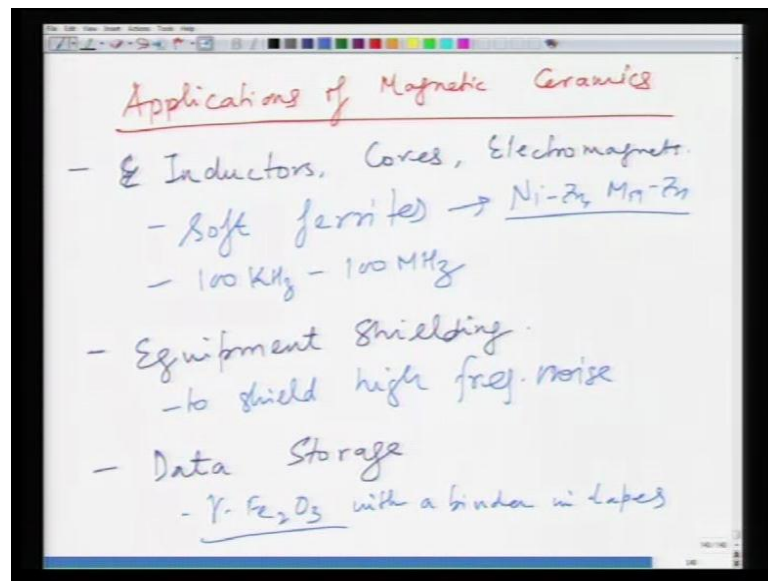 File Edit View Insert Actions Tools Help
Applications of Magnetic Ceramics
- Inductors, Cores, Electromagnets.
- Soft ferrites → Ni-Zn, Mn-Zn
- 100 KHz - 100 MHz
- Equipment Shielding.
- to shield high freq. noise
- Data Storage
- γ-Fe2O3 with a binder in tapes